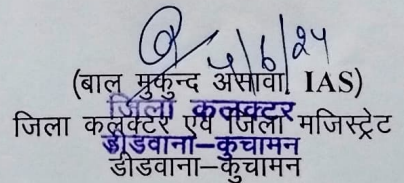 4/6/24
(बाल मुकुन्द असावा IAS)
जिला कलक्टर
जिला कलेक्टर एवं जिला मजिस्ट्रेट
डीडवाना–कुचामन
डीडवाना–कुचामन